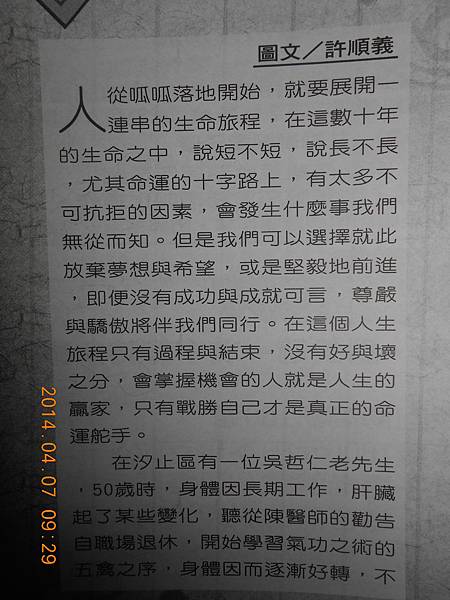 圖文／許順義
人從呱呱落地開始，就要展開一
連串的生命旅程，在這數十年
的生命之中，說短不短，說長不長
，尤其命運的十字路上，有太多不
可抗拒的因素，會發生什麼事我們
無從而知。但是我們可以選擇就此
放棄夢想與希望，或是堅毅地前進
，即便沒有成功與成就可言，尊嚴
與驕傲將伴我們同行。在這個人生
旅程只有過程與結束，沒有好與壞
之分，會掌握機會的人就是人生的
贏家，只有戰勝自己才是真正的命
運舵手。
在汐止區有一位吳哲仁老先生
，50歲時，身體因長期工作，肝臟
起了某些變化，聽從陳醫師的勸告
自職場退休，開始學習氣功之術的
五禽之序，身體因而逐漸好轉，不
2014.04.07 09:29